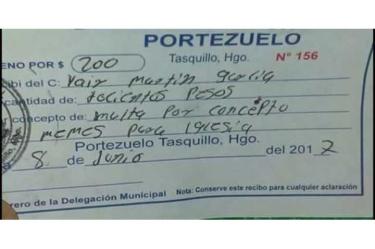 PORTEZUELO
Tasquillo, Hgo. N° 156
ENO POR $ 200
ibi del C: Yair Martin Garcia
cantidad de: Docientos Pesos
concepto de: Multa Por Concepto
MEMES Para IGLesia
Portezuelo Tasquillo, Hgo.
8 de Junio del 2017
rero de la Delegación Municipal Nota: Conserve este recibo para cualquier aclaración